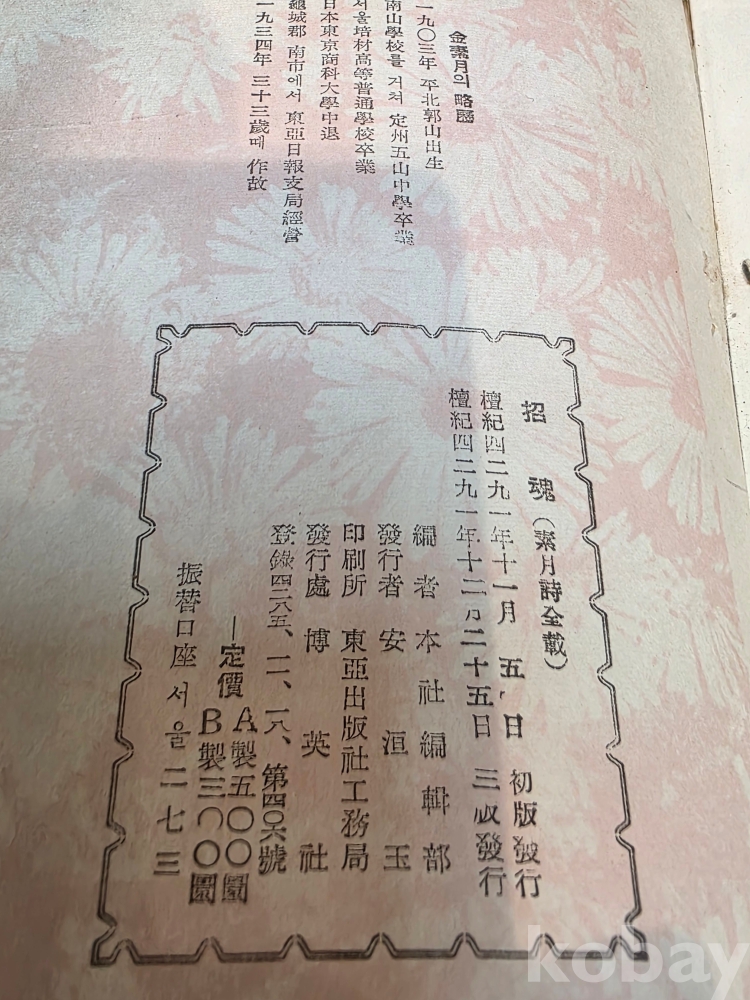 金素月의 略歷
一九〇三年 平北郭山出生
南山學校를 거쳐 定州五山中學卒業
서울培材高等普通學校卒業
日本東京商科大學中退
龜城郡 南市에서 東亞日報支局經營
一九三四年 三十三歲때 作故
招魂(素月詩全載)
檀紀四二九一年十一月 五日 初版發行
檀紀四二九一年十二月二十五日 三版發行
編者 本社編輯部
發行者 安洹玉
印刷所 東亞出版社工務局
發行處 博英社
登錄四二八五、一二、一八、第四〇六號
—定價 A製五〇〇圜
B製三〇〇圜
振替口座 서울 二七三
kobay